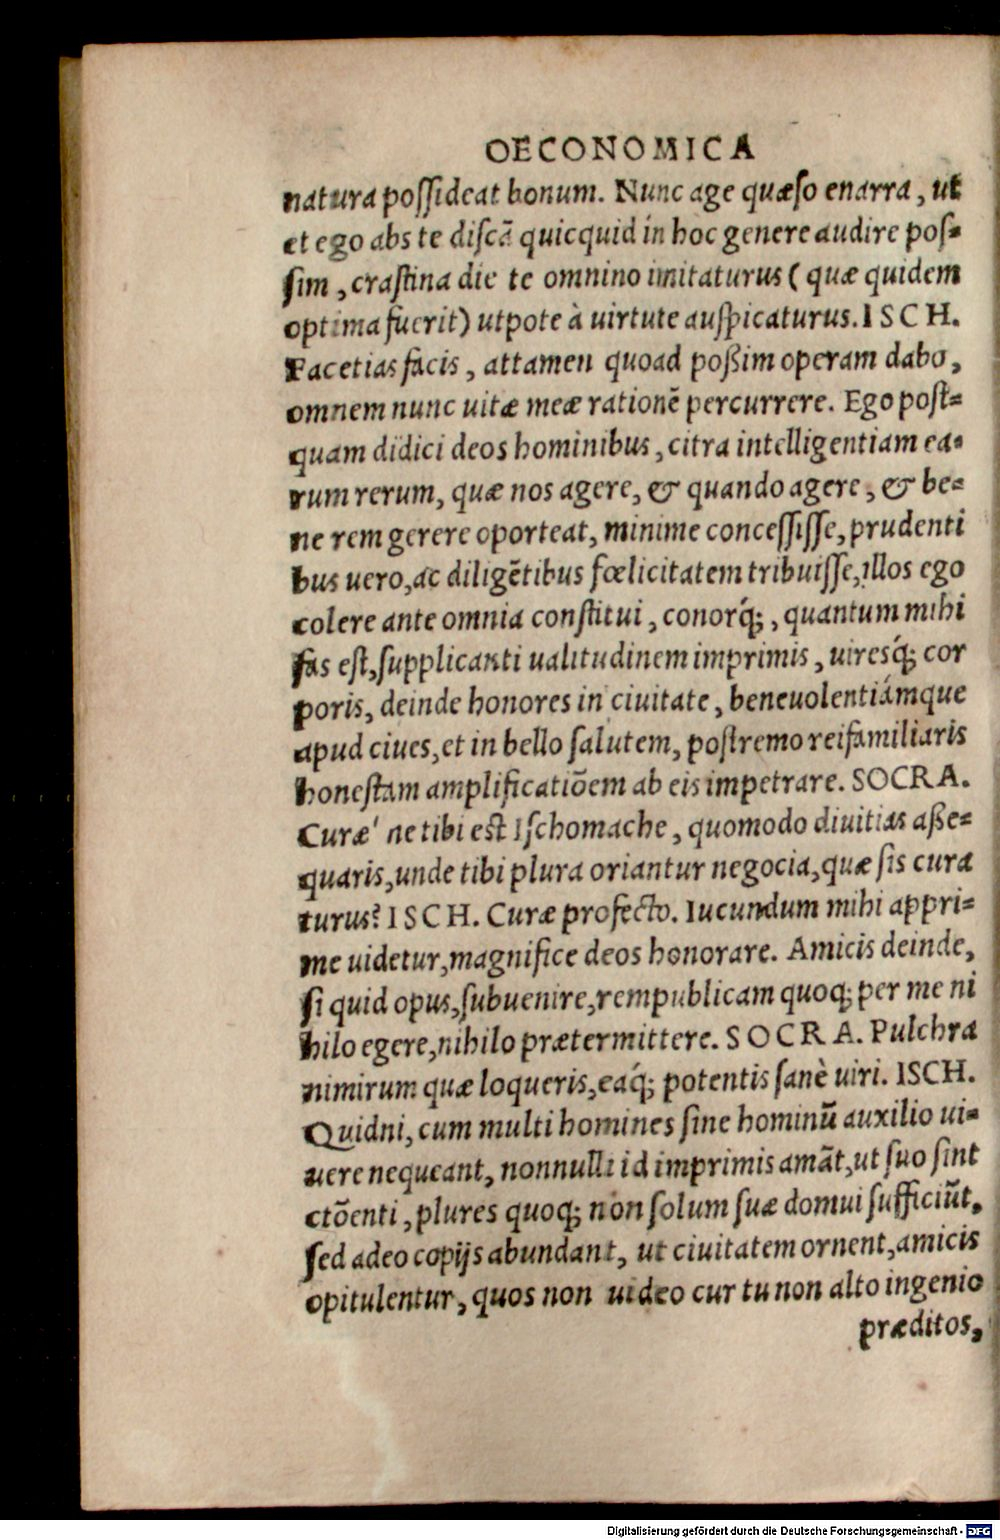 OECONOMICA
natura poſſideat bonum. Nunc age quæſo enarra, ut
et ego abs te diſcā quicquid in hoc genere audire poſ-
ſim, craſtina die te omnino imitaturus (quæ quidem
optima fuerit) utpote à uirtute auſpicaturus. ISCH.
Facetias facis, attamen quoad poßim operam dabo,
omnem nunc uitæ meæ rationē percurrere. Ego poſt-
quam didici deos hominibus, citra intelligentiam ea-
rum rerum, quæ nos agere, & quando agere, & be-
ne rem gerere oporteat, minime conceſſiſſe, prudenti
bus uero, ac diligētibus fœlicitatem tribuiſſe, illos ego
colere ante omnia conſtitui, conorq́;, quantum mihi
fas eſt, ſupplicanti ualitudinem imprimis, uiresq́; cor
poris, deinde honores in ciuitate, beneuolentiámque
apud ciues, et in bello ſalutem, poſtremo rei familiaris
honeſtam amplificatiōem ab eis impetrare. SOCRA.
Curæ' ne tibi eſt Iſchomache, quomodo diuitias aße-
quaris, unde tibi plura oriantur negocia, quæ ſis cura
turus? ISCH. Curæ profecto. Iucundum mihi appri-
me uidetur, magnifice deos honorare. Amicis deinde,
ſi quid opus, ſubuenire, rempublicam quoq; per me ni
hilo egere, nihilo prætermittere. SOCRA. Pulchra
nimirum quæ loqueris, eaq́; potentis ſanè uiri. ISCH.
Quidni, cum multi homines ſine hominū auxilio ui-
uere nequeant, nonnulli id imprimis amāt, ut ſuo ſint
ctōenti, plures quoq; non ſolum ſuæ domui ſufficiūt,
ſed adeo copijs abundant, ut ciuitatem ornent, amicis
opitulentur, quos non uideo cur tu non alto ingenio
præditos,
Digitalisierung gefördert durch die Deutsche Forschungsgemeinschaft - DFG